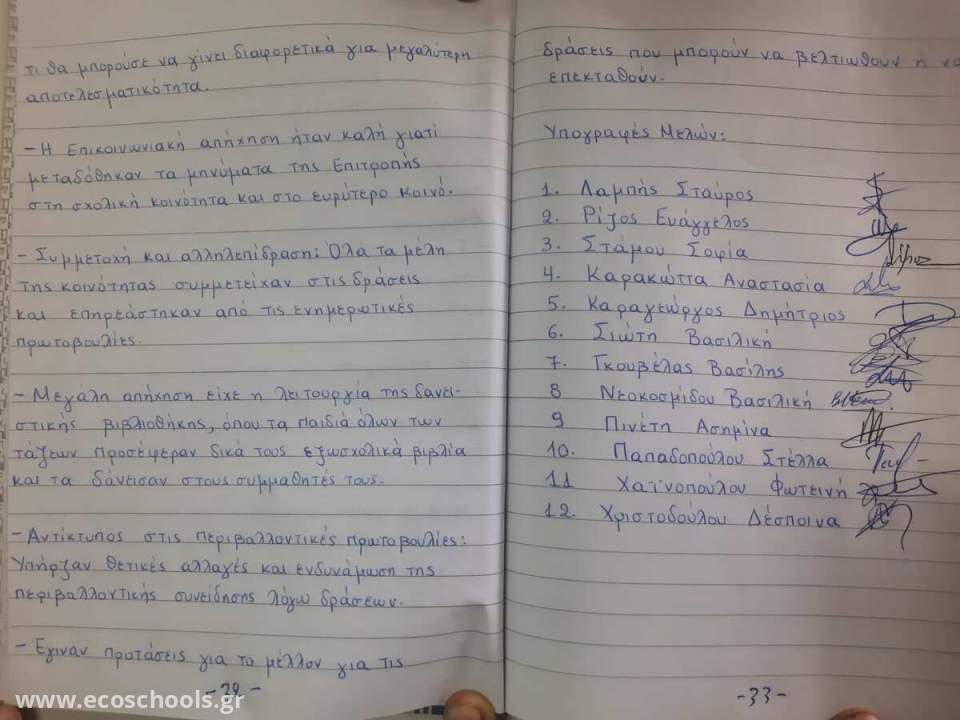 τι θα μπορούσε να γίνει διαφορετικά για μεγαλύτερη
αποτελεσματικότητα.
- Η Επικοινωνιακή απήχηση ήταν καλή γιατί
μεταδόθηκαν τα μηνύματα της Επιτροπής
στη σχολική κοινότητα και στο ευρύτερο κοινό.
- Συμμετοχή και αλληλεπίδραση: Όλα τα μέλη
της κοινότητας συμμετείχαν στις δράσεις
και επηρεάστηκαν από τις ενημερωτικές
πρωτοβουλίες.
- Μεγάλη απήχηση είχε η λειτουργία της δανει-
στικής βιβλιοθήκης, όπου τα παιδιά όλων των
τάξεων προσέφεραν δικά τους εξωσχολικά βιβλία
και τα δάνεισαν στους συμμαθητές τους.
- Αντίκτυπος στις περιβαλλοντικές πρωτοβουλίες:
Υπήρξαν θετικές αλλαγές και ενδυνάμωση της
περιβαλλοντικής συνείδησης λόγω δράσεων.
- Έγιναν προτάσεις για το μέλλον για τις
www.ecoschools.gr
δράσεις που μπορούν να βελτιωθούν ή να
επεκταθούν.
Υπογραφές Μελών:
1. Λαμπής Σταύρος
2. Ρίζος Ευάγγελος
3. Στάμου Σοφία
4. Καρακώττα Αναστασία
5. Καραγεώργος Δημήτριος
6. Σιώτη Βασιλική
7. Γκουβέλας Βασίλης
8 Νεοκοσμίδου Βασιλική
9 Πινέτη Ασημίνα
10. Παπαδοπούλου Στέλλα
11 Χαϊνοπούλου Φωτεινή
12. Χριστοδούλου Δέσποινα
-33-